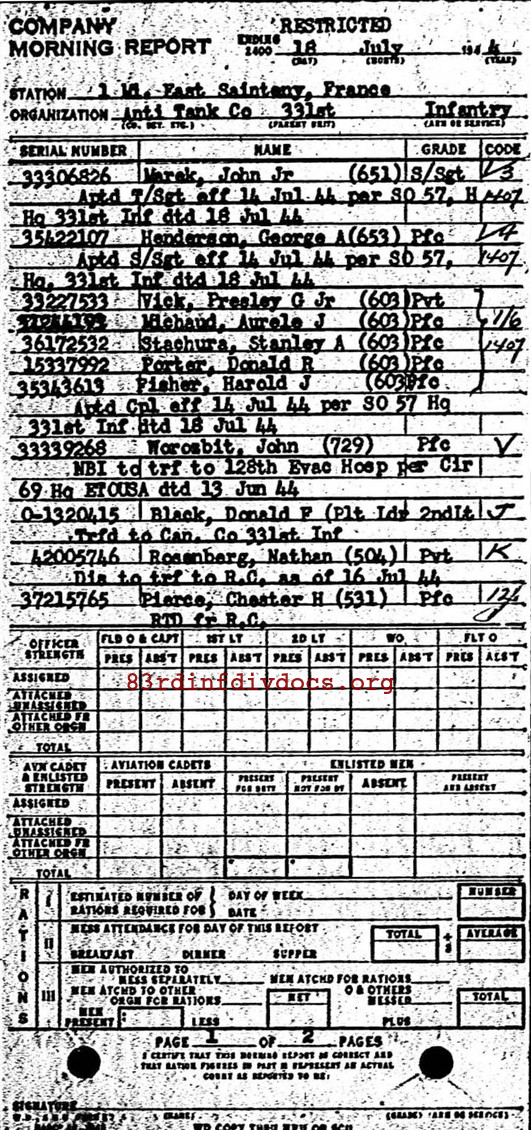 COMPANY RESTRICTED
MORNING REPORT ENDING 2400 18 July 1944
(DAY) (MONTH) (YEAR)
STATION 1 Mi. East Sainteny, France
ORGANIZATION Anti Tank Co 331st Infantry
(CO. DET. ETC.) (PARENT UNIT) (ARM OR SERVICE)
SERIAL NUMBER NAME GRADE CODE
33306826 Marek, John Jr (651) S/Sgt
Aptd T/Sgt eff 14 Jul 44 per SO 57, H 1407
Hq 331st Inf dtd 18 Jul 44
35422107 Henderson, George A(653) Pfc
Aptd S/Sgt eff 14 Jul 44 per SO 57, 1407
Hq, 331st Inf dtd 18 Jul 44
33227533 Vick, Presley G Jr (603) Pvt
Michaud, Aurele J (603) Pfc 1/6
36172532 Stachura, Stanley A (603) Pfc 1407
15337992 Porter, Donald R (603) Pfc
35343613 Fisher, Harold J (603) Pfc
Aptd Cpl eff 14 Jul 44 per SO 57 Hq
331st Inf dtd 18 Jul 44
33339268 Worosbit, John (729) Pfc V
NBI to trf to 128th Evac Hosp per Cir
69 Hq ETOUSA dtd 13 Jun 44
O-1320415 Black, Donald F (Plt Ldr 2ndLt J
Trfd to Can. Co 331st Inf
42005746 Rosenberg, Nathan (504) Pvt K
Dis to trf to R.C, as of 16 Jul 44
37215765 Pierce, Chester H (531) Pfc
RTD fr R.C.
OFFICER STRENGTH FLD O & CAPT 1ST LT 2D LT WO FLT O
PRES ABS'T PRES ABS'T PRES ABS'T PRES ABS'T PRES ABS'T
ASSIGNED
83rdinfdivdocs.org
ATTACHED UNASSIGNED
ATTACHED FR OTHER ORGN
TOTAL
AVN CADET & ENLISTED STRENGTH AVIATION CADETS ENLISTED MEN
PRESENT ABSENT PRESENT FOR DUTY PRESENT NOT FOR DY ABSENT PRESENT AND ABSENT
ASSIGNED
ATTACHED UNASSIGNED
ATTACHED FR OTHER ORGN
TOTAL
RATIONS
I ESTIMATED NUMBER OF RATIONS REQUIRED FOR { DAY OF WEEK DATE NUMBER
II MESS ATTENDANCE FOR DAY OF THIS REPORT TOTAL ÷ 3 AVERAGE
BREAKFAST DINNER SUPPER
III MEN AUTHORIZED TO MESS SEPARATELY MEN ATCHD FOR RATIONS
MEN ATCHD TO OTHER ORGN FOR RATIONS NET O & OTHERS MESSED TOTAL
MEN PRESENT LESS PLUS
PAGE 1 OF 2 PAGES
I CERTIFY THAT THIS MORNING REPORT IS CORRECT AND
THAT RATION FIGURES IN PART III REPRESENT AN ACTUAL
COUNT AS REPORTED TO ME:
SIGNATURE
(GRADE) (ARM OR SERVICE)